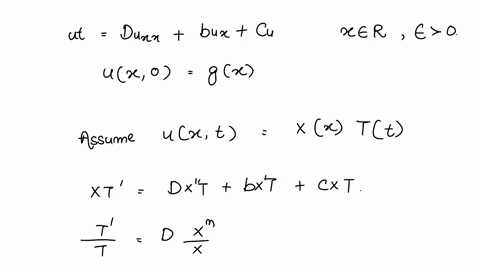 ut = Duxx + bux + Cu x∈R , ϵ>0.
u(x,0) = g(x)
Assume u(x,t) = X(x) T(t)
XT' = DX"T + bX'T + CXT.
T'/T = D X"/X